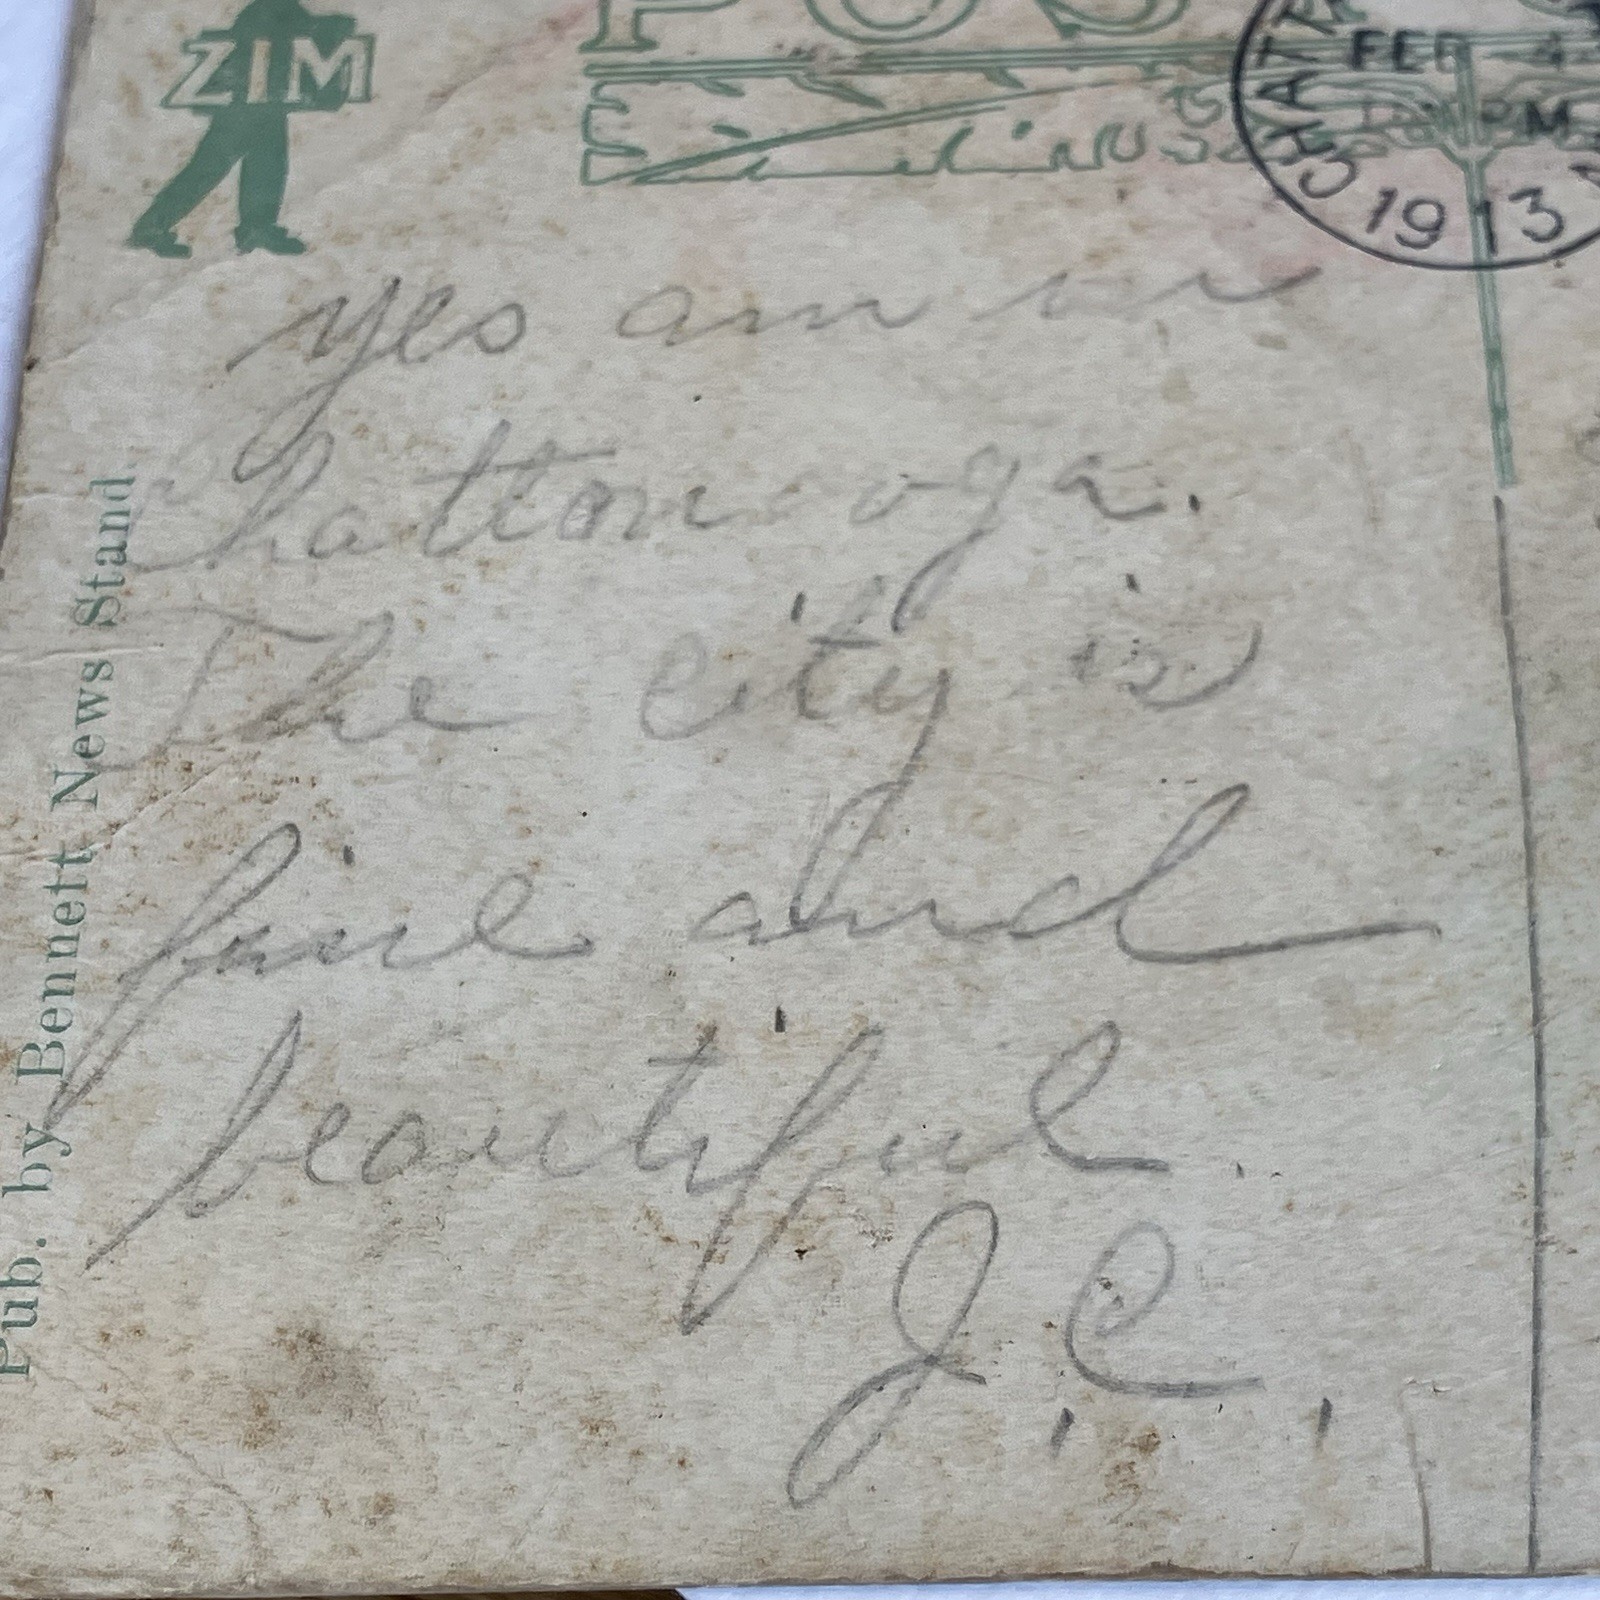 ZIM
POS
CHAT
FEB 4
PM
1913
yes am in
Chattonooga.
The city is
fine and
beautiful.
J.C.
Pub. by Bennett News Stand.